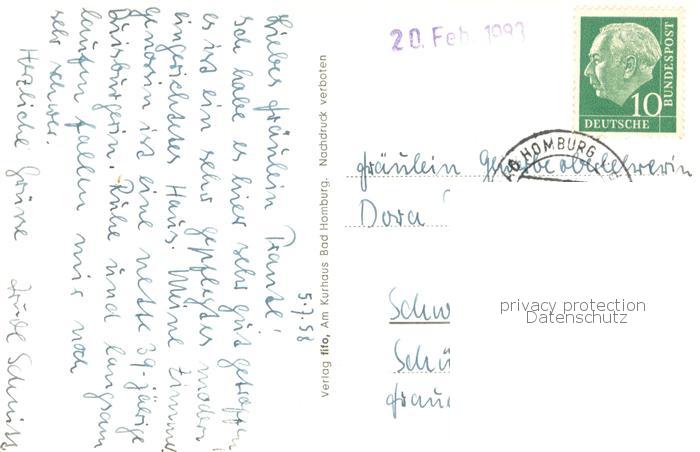 5.7.58
Liebes Fräulein Traute!
Ich habe es hier sehr gut getroffen,
es ist ein sehr gepflegtes modern
eingerichtetes Haus. Meine Zimmer-
genossin ist eine nette 39-jährige
Duisburgerin. Ruhe und langsam
laufen fallen mir noch
sehr schwer.
Herzliche Grüsse
Verlag fifo, Am Kurhaus Bad Homburg. Nachdruck verboten
20. Feb. 1993
10
DEUTSCHE BUNDESPOST
BAD HOMBURG
Fräulein Gewerbeoberlehrerin
Dora
Schw
Schü
Frau
privacy protection
Datenschutz